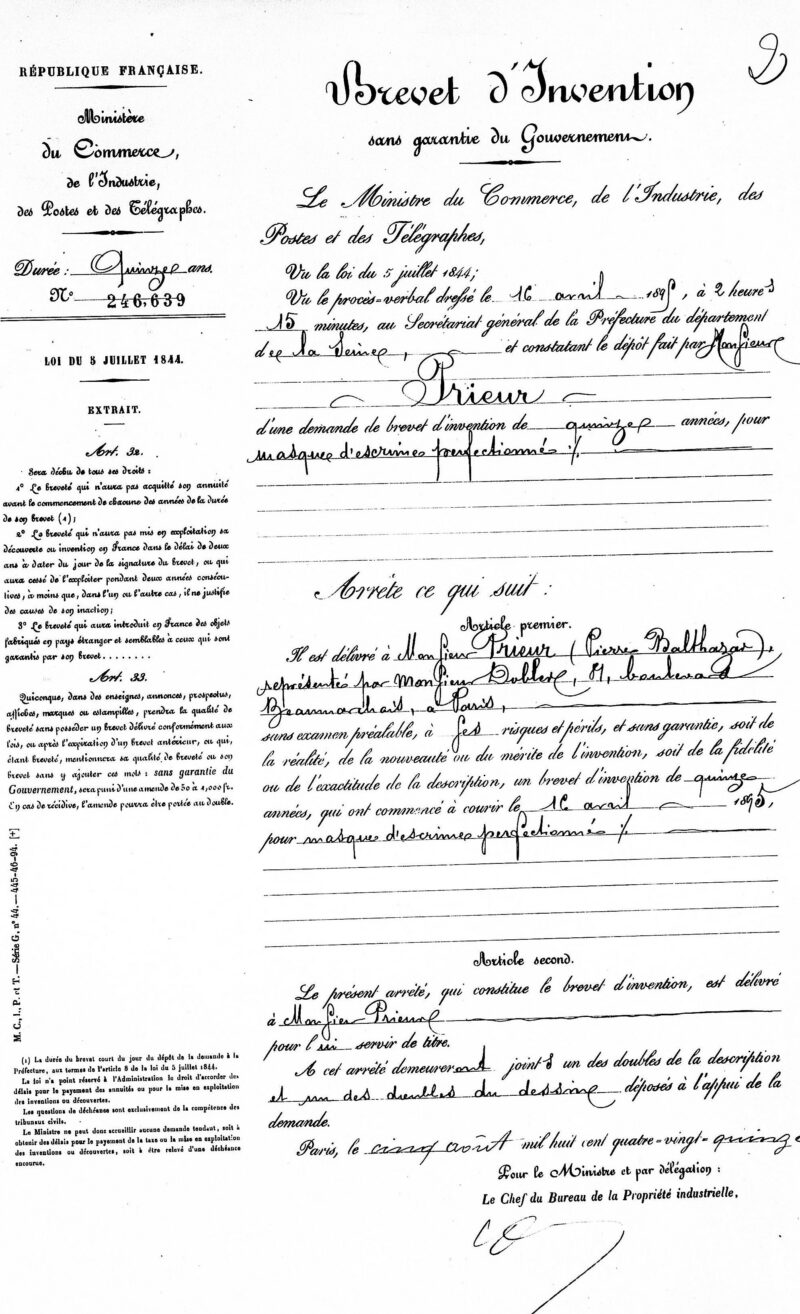 2
RÉPUBLIQUE FRANÇAISE.
Ministère
du Commerce,
de l'Industrie,
des Postes et des Télégraphes.
Durée : Quinze ans.
N° 246,639
LOI DU 5 JUILLET 1844.
EXTRAIT.
Art. 32.
Sera déchu de tous ses droits :
1° Le breveté qui n'aura pas acquitté son annuité
avant le commencement de chacune des années de la durée
de son brevet (1);
2° Le breveté qui n'aura pas mis en exploitation sa
découverte ou invention en France dans le délai de deux
ans à dater du jour de la signature du brevet, ou qui
aura cessé de l'exploiter pendant deux années consécu-
tives, à moins que, dans l'un ou l'autre cas, il ne justifie
des causes de son inaction;
3° Le breveté qui aura introduit en France des objets
fabriqués en pays étranger et semblables à ceux qui sont
garantis par son brevet. . . . . . . .
Art. 33.
Quiconque, dans des enseignes, annonces, prospectus,
affiches, marques ou estampilles, prendra la qualité de
breveté sans posséder un brevet délivré conformément aux
lois, ou après l'expiration d'un brevet antérieur, ou qui,
étant breveté, mentionnera sa qualité de breveté ou son
brevet sans y ajouter ces mots : sans garantie du
Gouvernement, sera puni d'une amende de 50 à 1,000 fr.
En cas de récidive, l'amende pourra être portée au double.
M. C., I., P. et T. — Série G, n° 44. — 445-46-94. [*]
(1) La durée du brevet court du jour du dépôt de la demande à la
Préfecture, aux termes de l'article 8 de la loi du 5 juillet 1844.
La loi n'a point réservé à l'Administration le droit d'accorder des
délais pour le payement des annuités ou pour la mise en exploitation
des inventions ou découvertes.
Les questions de déchéance sont exclusivement de la compétence des
tribunaux civils.
Le Ministre ne peut donc accueillir aucune demande tendant, soit à
obtenir des délais pour le payement de la taxe ou la mise en exploitation
des inventions ou découvertes, soit à être relevé d'une déchéance
encourue.
Brevet d'Invention
sans garantie du Gouvernement.
Le Ministre du Commerce, de l'Industrie, des
Postes et des Télégraphes,
Vu la loi du 5 juillet 1844;
Vu le procès-verbal dressé le 16 avril 1895, à 2 heures
15 minutes, au Secrétariat général de la Préfecture du département
de la Seine, et constatant le dépôt fait par Monsieur
Prieur
d'une demande de brevet d'invention de quinze années, pour
masque d'escrime perfectionné
Arrête ce qui suit :
Article premier.
Il est délivré à Monsieur Prieur (Pierre Balthazar),
représenté par Monsieur Dobler, 81, boulevard
Beaumarchais, à Paris,
sans examen préalable, à ses risques et périls, et sans garantie, soit de
la réalité, de la nouveauté ou du mérite de l'invention, soit de la fidélité
ou de l'exactitude de la description, un brevet d'invention de quinze
années, qui ont commencé à courir le 16 avril 1895,
pour masque d'escrime perfectionné
Article second.
Le présent arrêté, qui constitue le brevet d'invention, est délivré
à Monsieur Prieur
pour lui servir de titre.
A cet arrêté demeureront joints un des doubles de la description
et un des doubles du dessin déposés à l'appui de la
demande.
Paris, le cinq août mil huit cent quatre-vingt-quinze
Pour le Ministre et par délégation :
Le Chef du Bureau de la Propriété industrielle,